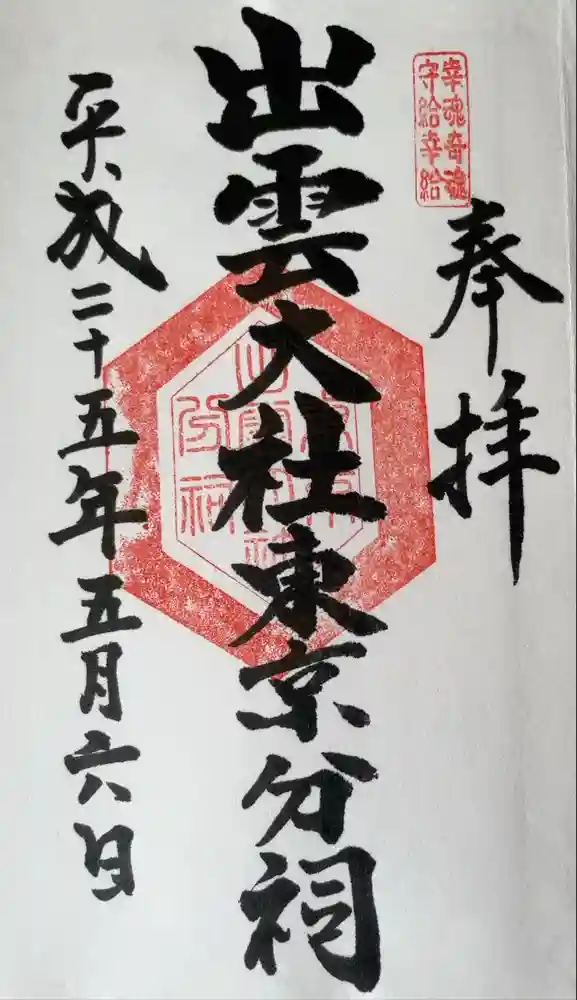 幸魂奇魂
守給幸給
奉拝
出雲大社東京分祠
平成二十五年五月六日